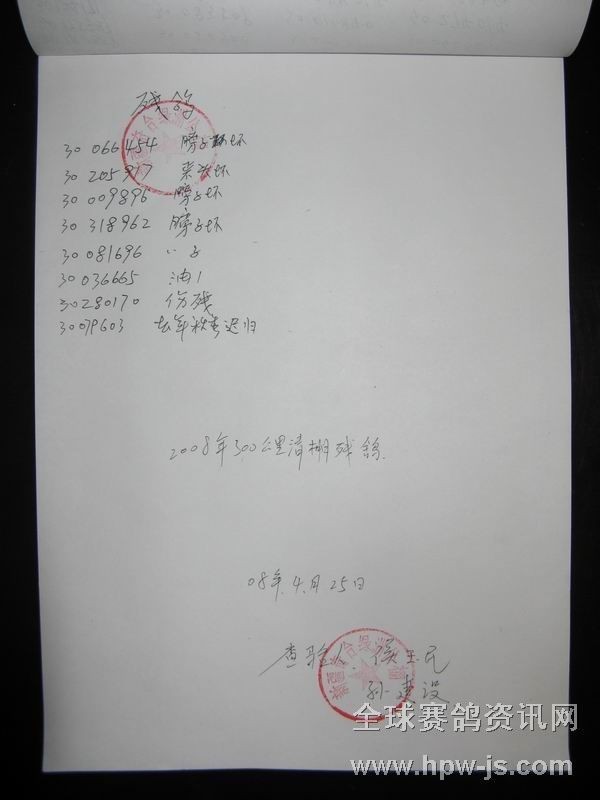 残鸽
30 066454 膀子坏
30 205917 坏
30 009896 膀子坏
30 318962 膀子坏
30 081696 〃 子
30 036665 油1
30280170 伤残
30079603 去年秋季迟归
2008年300公里清棚残鸽
08年.4.月25日
查验人.侯玉民
孙建设
全球赛鸽资讯网
www.hpw-js.com